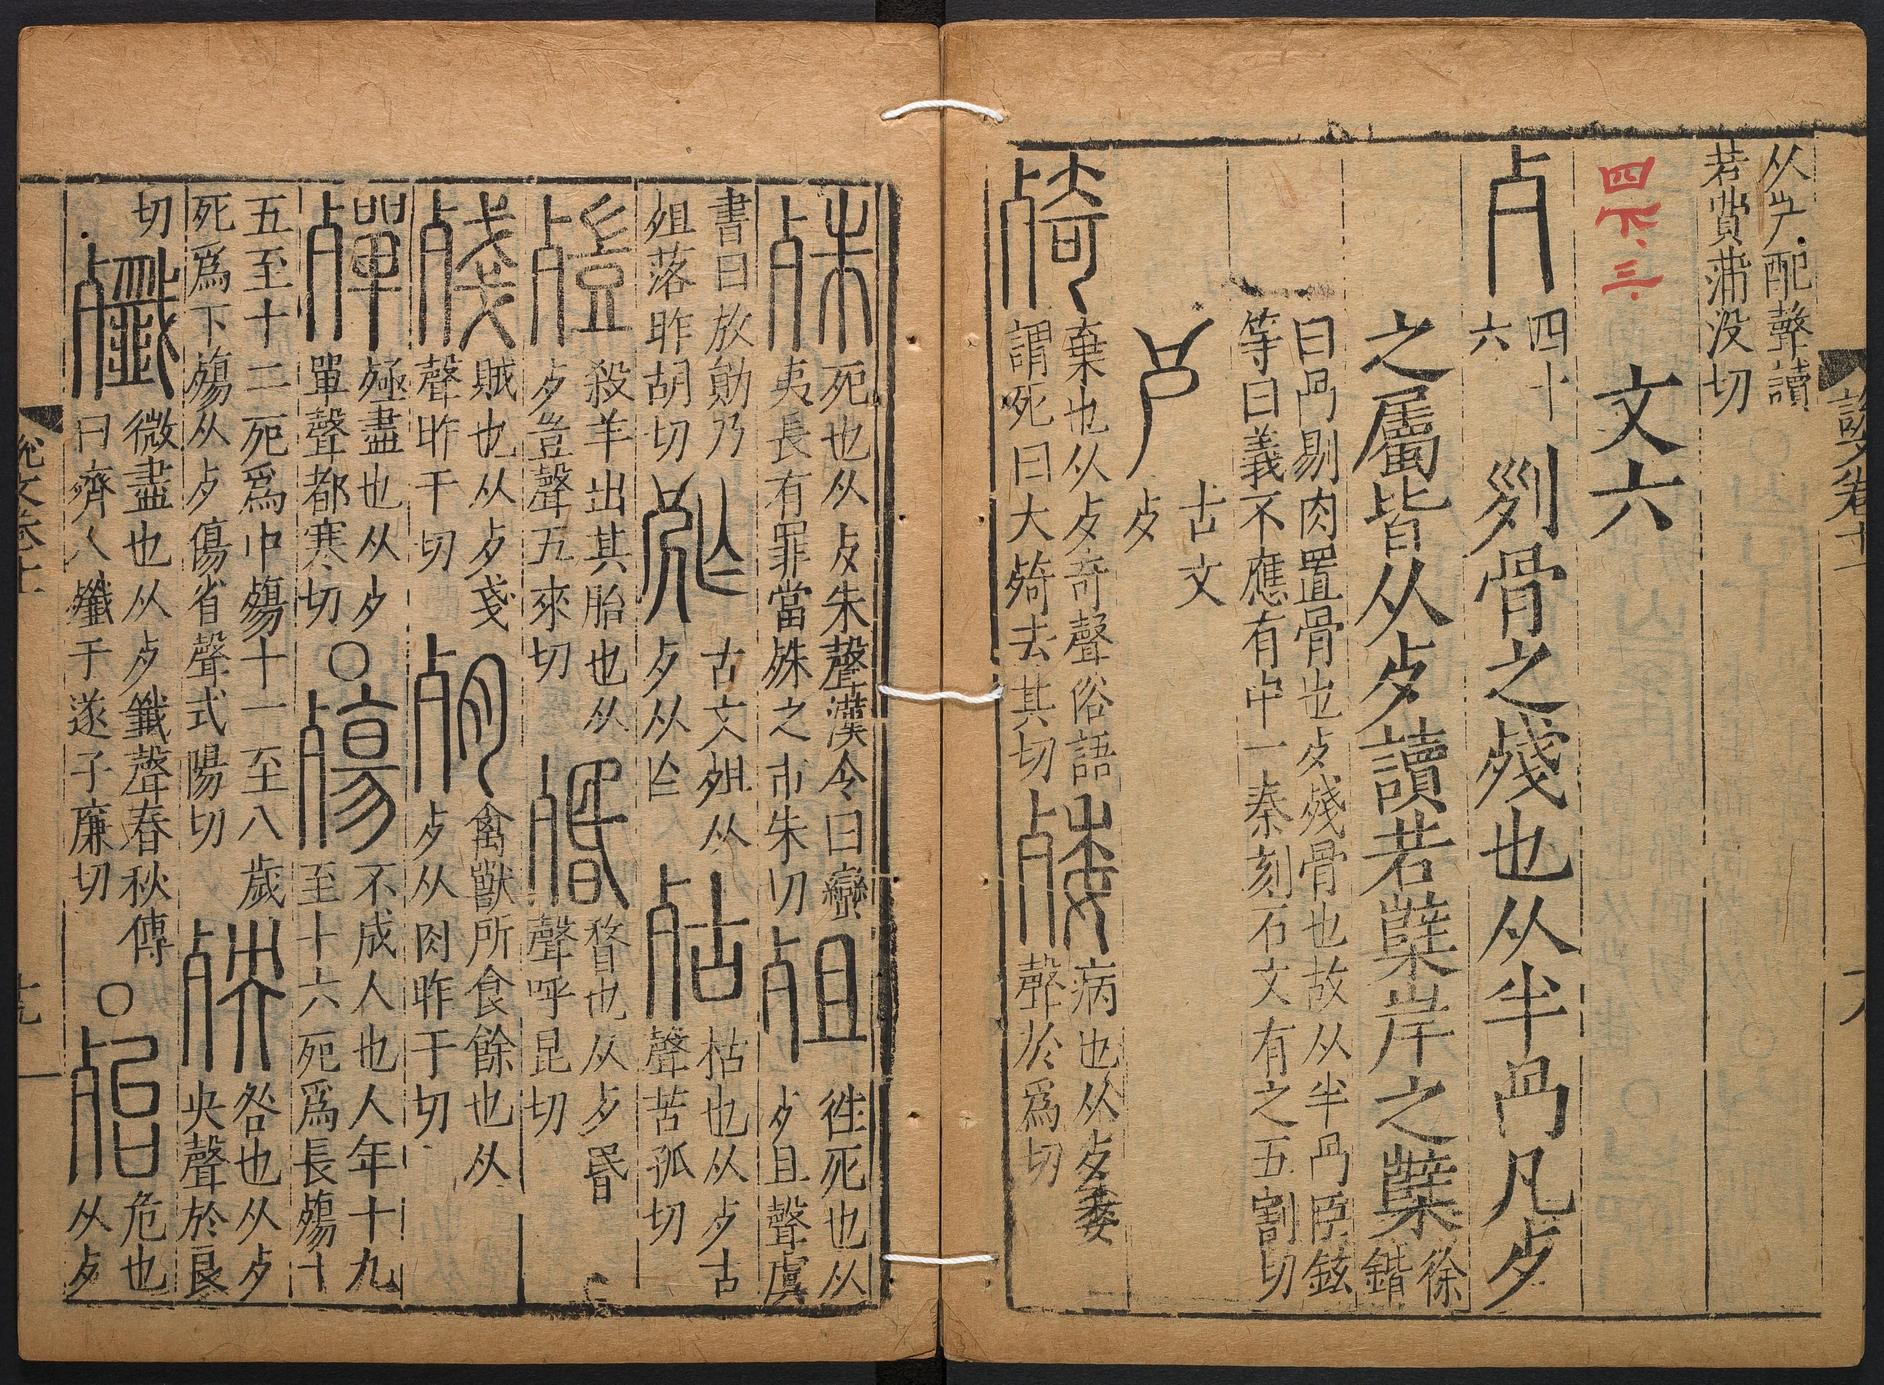 从屵配聲讀
若費蒲没切
文六
四下三
歺
四十
六
剡骨之殘也从半冎凡歺
之屬皆从歺讀若櫱岸之櫱
徐
鍇
曰冎剔肉置骨也歺殘骨也故从半冎臣鉉
等曰義不應有中一秦刻石文有之五割切
古文
歺
㱦
棄也从歺奇聲俗語
謂死曰大㱦去其切
病也从歺委
聲於爲切
殊
死也从歺朱聲漢令曰蠻
夷長有罪當殊之市朱切
殂
徃死也从
歺且聲虞
書曰放勛乃
殂落昨胡切
古文殂从
歺从
殆
枯也从歺古
聲苦孤切
殪
殺羊出其胎也从
歺豈聲五來切
殙
瞀也从歺昬
聲呼昆切
殘
賊也从歺戔
聲昨干切
禽獸所食餘也从
歺从肉昨干切
殫
殛盡也从歺
單聲都寒切
殤
不成人也人年十九
至十六死爲長殤十
五至十二死爲中殤十一至八歲
死爲下殤从歺傷省聲式陽切
殃
咎也从歺
央聲於良
切
殲
微盡也从歺韱聲春秋傳
曰齊人殲于遂子廉切
殆
危也
从歺